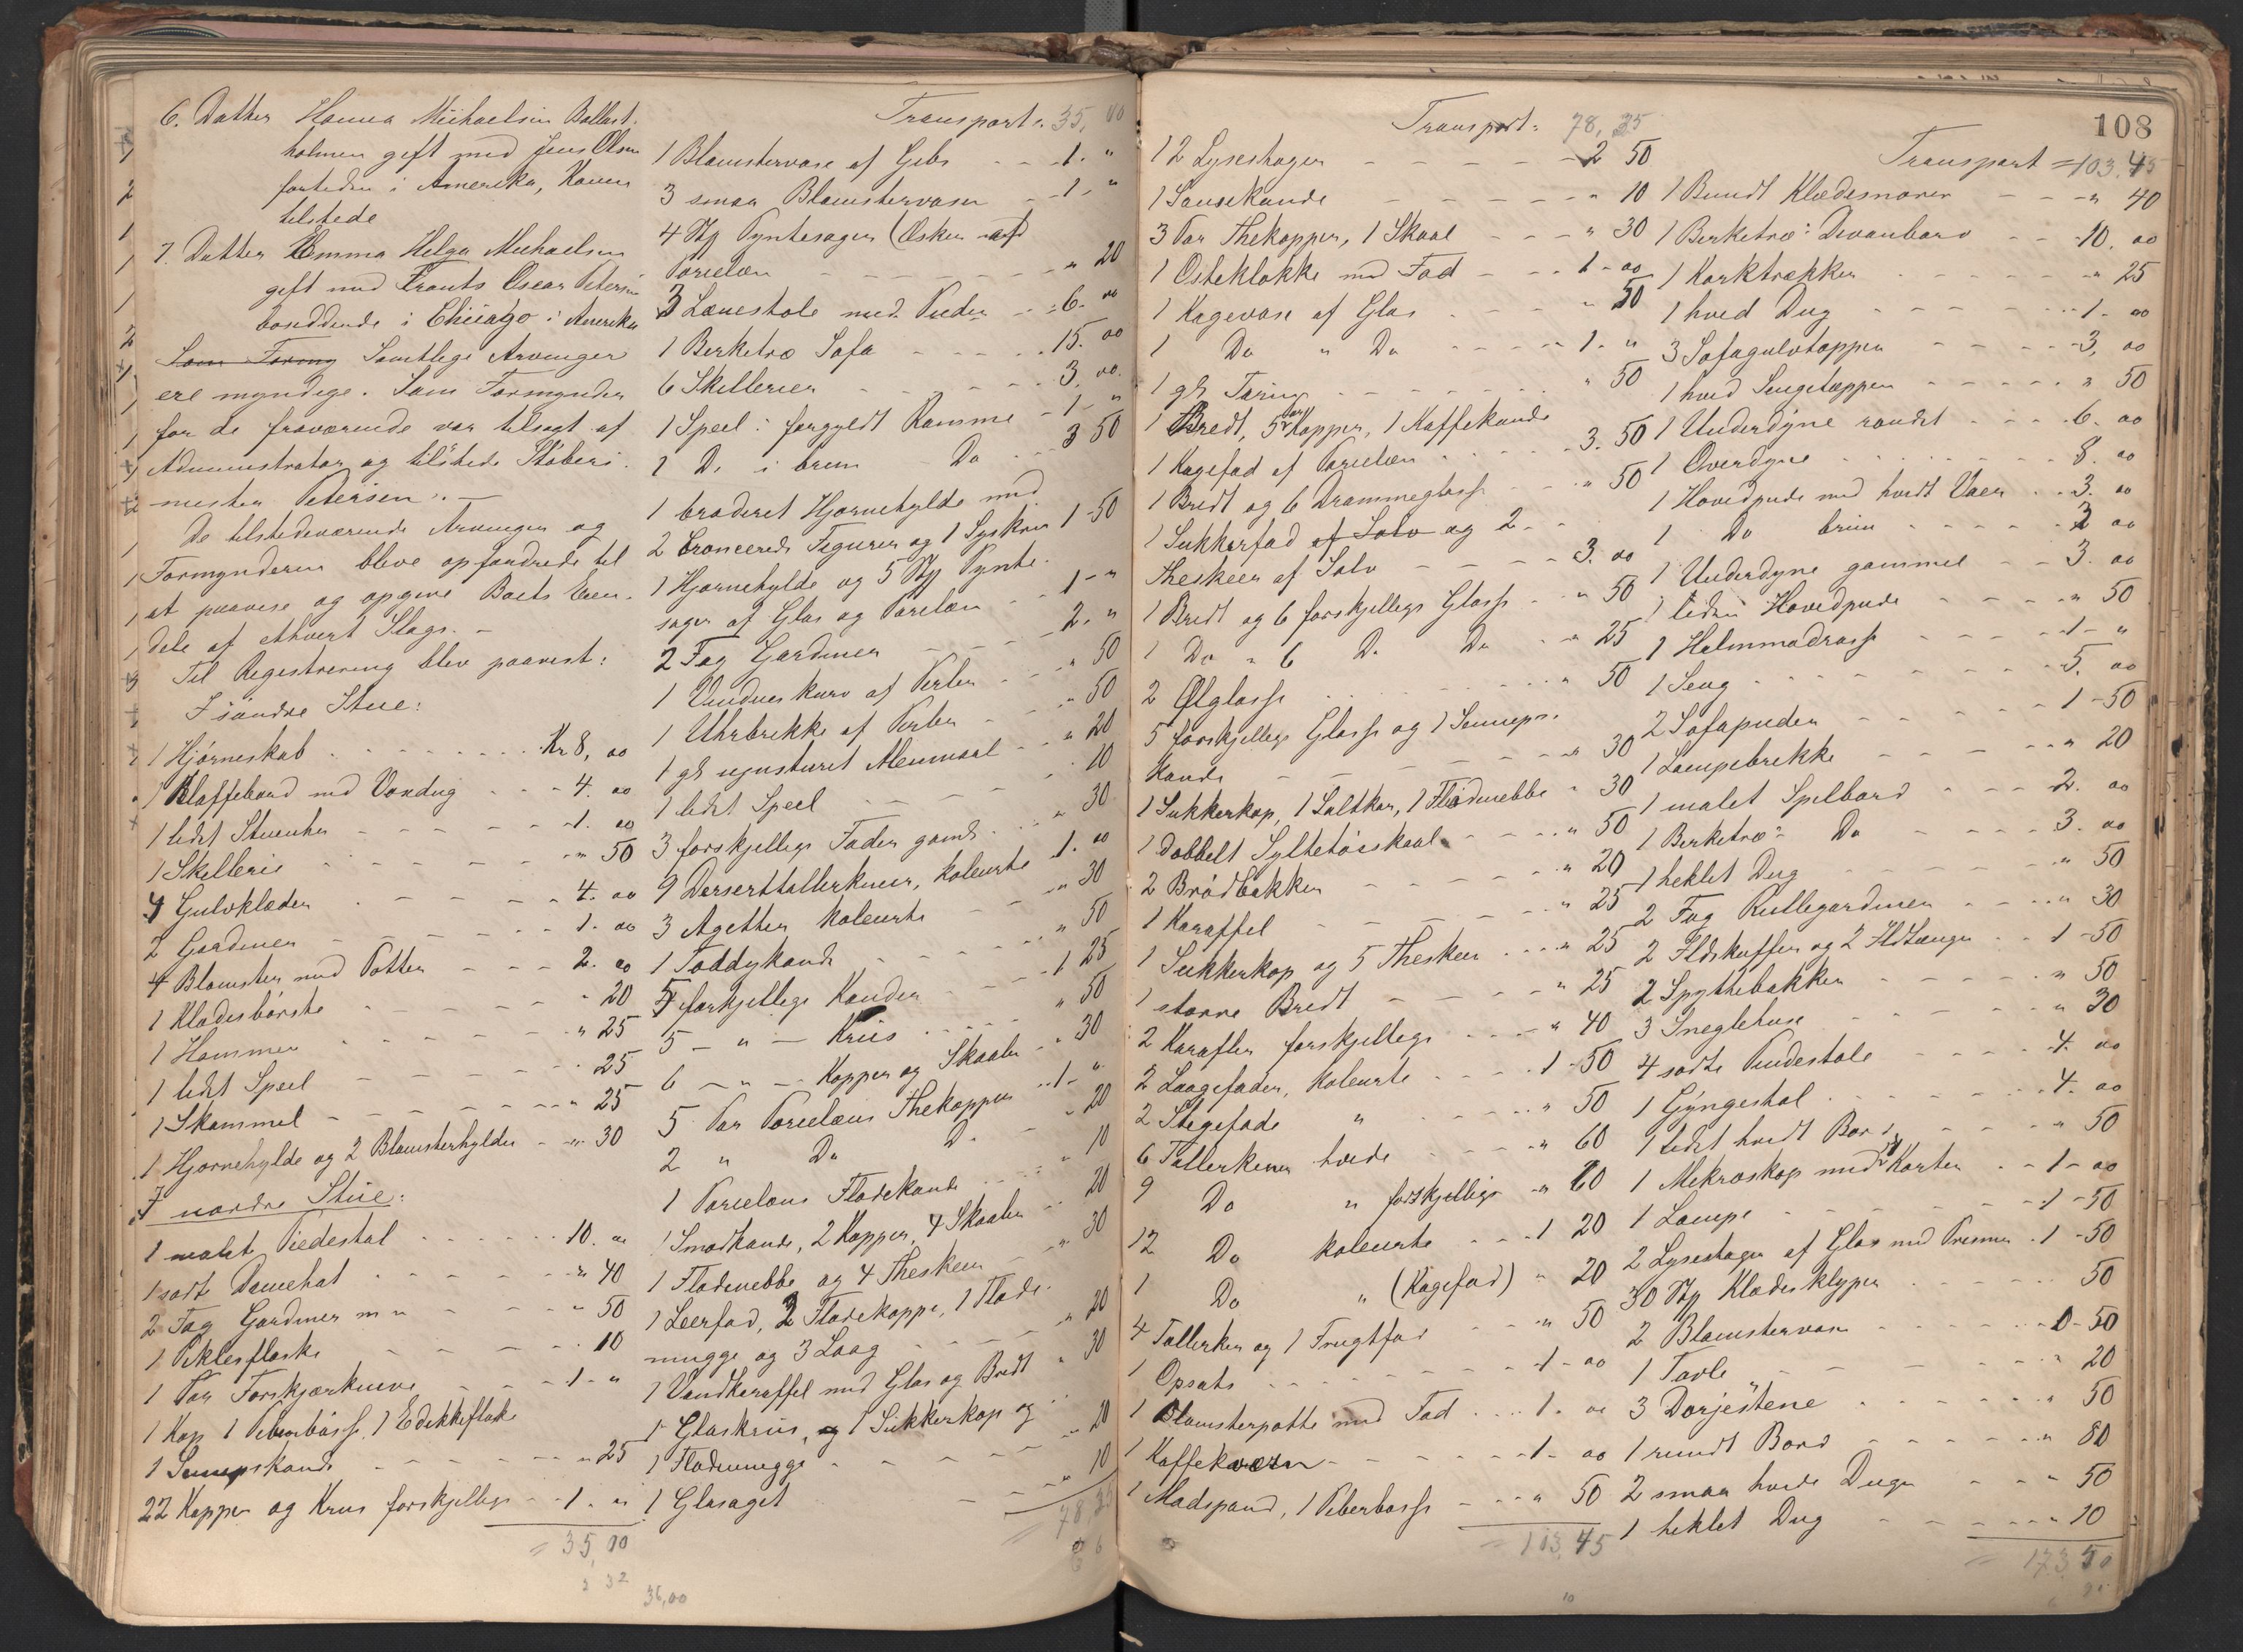 6. Datter Hanna Michaelsen Ballast-
holmen gift med Jens Olsen
fortiden i Amerika, Konen
tilstede
7. Datter Emma Helga Michaelsen
gift med Frants Oscar Petersen
boseddende i Chicago i Amerika
Som Formy Samtlige Arvinger
ere myndige. Som Formynder
for de fraværende var tilsagt af
Administrator og tilstede Stöberi-
mester Petersen. —
De tilstedeværende Arvinger og
Formynderen bleve opfordrede til
at paavise og opgive Boets Eien-
dele af ethvert Slags. —
Til Registrering blev paavist:
I söndre Stue:
1 Hjörneskab Kr 8, 00
1 Klaffebord med Voxdug 4. 00
1 lidet Stueuhr 1. 00
1 Skilleri " 50
4 Gulvklæder 4. 00
2 Gardiner 1. 00
4 Blomster med Potter 2. 00
1 Klædesbörste " 20
1 Hammer " 25
1 lidet Speil 25
1 Skammel " 25
1 Hjørnehylde og 2 Blomsterhylder " 30
I nordre Stue:
1 malet Piedestal 10. 00
1 sort Damehat " 40
2 Fag Gardiner m " 50
1 Piklesflaske 10
1 Par Forskjærknive 1. "
1 Kop 1 Peberbösse, 1 Edikkeflaske
1 Sennepskande " 25
22 Kopper og Krus forskjellige 1. "
= 35,00
36,00
Transport: 35,00
1 Blomstervase af Gibs 1. "
3 smaa Blomstervaser 1. "
4 Stk Pyntesager (Æsker af
Porcelæn " 20
3 Lænestole med Puder 6. 00
1 Berketræ Sofa 15. 00
6 Skillerier 3. 00
1 Speil i forgyldt Ramme 1 - "
1 Do i brun Do 3 50
1 broderet Hjørnehylde med
2 broncerede Figurer og 1 Syskrin 1 - 50
1 Hjørnehylde og 5 Stk Pynte-
sager af Glas og Porcelæn 1 - "
2 Fag Gardiner 2. "
1 Vindueskurv af Perler " 50
1 Uhrbrikke af Perler " 50
1 gl ujusteret Alenmaal " 20
1 lidet Speil 10
3 forskjellige Fader gamle " 30
9 Desserttallerkener, koleurte 1. 00
3 Agetter koleurte " 30
1 Toddykande " 50
5 forskjellige Kander 1 25
5 — " — Kruis " 50
6 — " — Kopper og Skaaler " 30
5 Par Porcelæns Thekopper 1 - "
2 " Do Do " 20
1 Porcelæns Flødekande " 10
1 Smørkande, 2 Kopper, 4 Skaaler 20
1 Flødenebbe og 4 Theskeer " 30
1 Leerfad, 2 Flødekoppe, 1 Fløde-
mugge og 3 Laag " 20
1 Vandkaraffel med Glas og Bredt " 30
1 Glaskruis, og 1 Sukkerkop og
1 Flødemugge " 20
1 Glasaget " 10
= 78,35
Transport: 78,35
12 Lysestager 2 50
1 Sausekande " 10
3 Par Thekopper, 1 Skaal " 30
1 Osteklokke med Fad 1 - 00
1 Kagevase af Glas " 50
1 Do " Do 1. "
1 gl Terin " 50
1 Bredt, 5 Par Kopper, 1 Kaffekande
1 Kagefad af Porcelæn 3. 50
1 Bredt og 6 Drammeglasse " 50
1 Sukkerfad af Sølv og 2
Theskeer af Sølv 3. 00
1 Bredt og 6 forskjellige Glasse " 50
1 Do " 6 Do Do " 25
2 Ølglasse " 50
5 forskjellige Glasse og 1 Senneps-
kande " 30
1 Sukkerkop, 1 Saltkar, 1 Flødenebbe " 30
1 dobbelt Syltetöisskaal " 50
2 Brödbakker " 20
1 Karaffel " 25
1 Sukkerkop og 5 Theskeer " 25
1 større Bredt " 25
2 Karafler forskjellige " 40
2 Laagefader, koleurte 1 - 50
2 Stegefade " " 50
6 Tallerkener hvide " 60
9 Do " forskjellige " 60
12 Do koleurte 1 20
1 Do " (Kagefad) " 20
4 Tallerken og 1 Frugtfad " 50
1 Opsats 1 - 00
1 Blomsterpotte med Fad 1. 00
1 Kaffekværn 1 - 00
1 Madspand, 1 Peberbøsse " 50
= 103,45
108
Transport = 103.45
1 Bundt Klædesnorer " 40
1 Berketræ: Divanbord 10. 00
1 Korktrækker " 25
1 hvid Dug 1. 00
3 Sofagulvtæpper 3. 00
1 hvid Sengetæppe " 50
1 Underdyne randet 6. 00
1 Overdyne 8. 00
1 Hovedpude med hvidt Vaer 3. 00
1 Do brun 2 00
1 Underdyne gammel 3. 00
1 liden Hovedpude " 50
1 Halmmadrasse 1 - "
1 Seng 5. 00
2 Sofapuder 1 - 50
1 Lampebrikke " 20
1 malet Spilbord 2. 00
1 Berketræ- Do 3. 00
1 heklet Dug " 50
2 Fag Rullegardiner " 30
2 Ildskuffer og 2 Ildtænger 1 - 50
2 Spyttebakker " 50
3 Sneglehuse " 30
4 sorte Pindestole 4. 00
1 Gyngestol 4. 00
1 lidet hvidt Bord " 50
1 Mikroskop med Karter 1 - 00
1 Lampe 1 - 50
2 Lysestager af Glas med Prismer 1 - 50
30 Stk Klædesklyper 50
2 Blomstervaser 0 - 50
1 Tavle " 20
3 Dørjestene " 50
1 rundt Bord " 80
2 smaa hvide Duger " 50
1 heklet Dug " 10
= 173,50